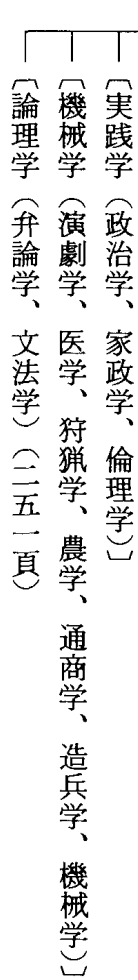 〔実践学（政治学、家政学、倫理学）〕
〔機械学（演劇学、医学、狩猟学、農学、通商学、造兵学、機械学）〕
〔論理学（弁論学、文法学）（二五一頁）